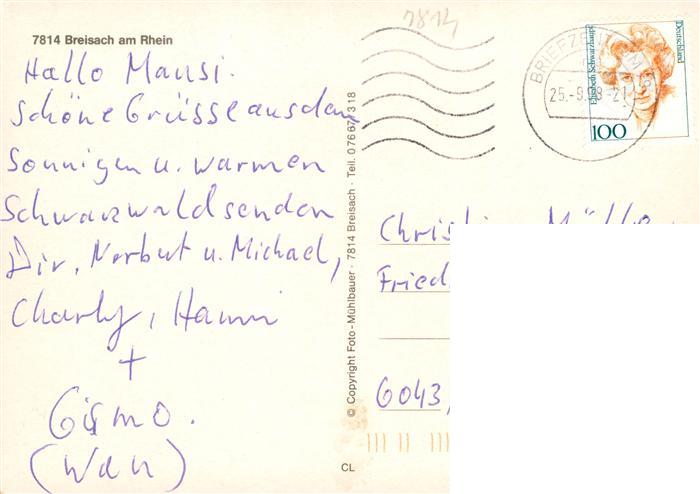 7814
7814 Breisach am Rhein
Hallo Mausi.
Schöne Grüsse aus dem
Sonnigen u. warmen
Schwarzwald senden
Dir, Norbert u. Michael,
Charly, Hanni
+
Gismo.
(Wau)
© Copyright Foto-Mühlbauer · 7814 Breisach · Teil. 07667/318
CL
BRIEFZENTRUM
25.-9.98-21
Elisabeth Schwarzhaupt
Deutschland
100
Fried
6043,